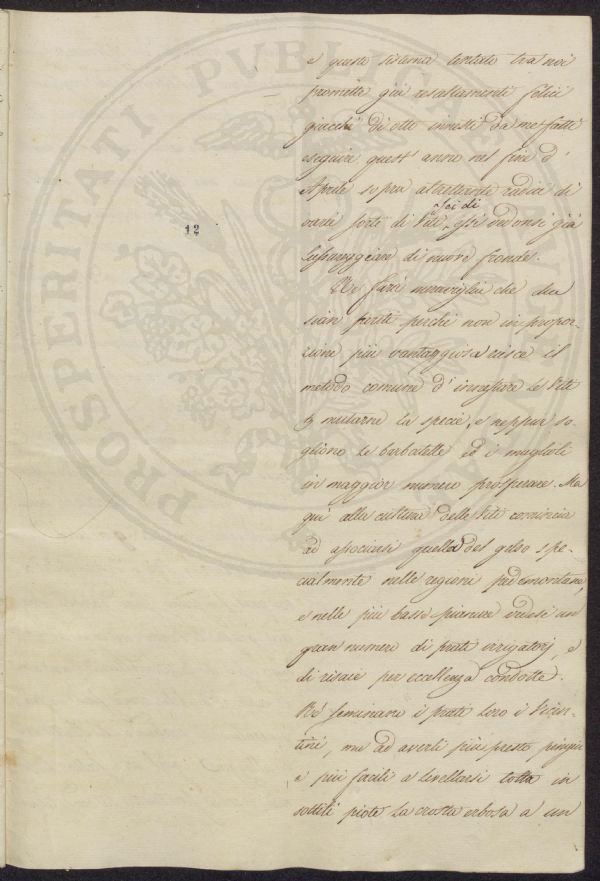 PROSPERITATI PUBLICAE
12
e questo sistema tentato tra noi
promette già esaltamenti felici
giacchè di otto innesti da me fatti
eseguire quest'anno nel fine d'
Aprile sopra altrettante radici di
varie sorti di Vite, sei di essi vedonsi già
lussureggiare di nuove frondi.
Nè farà meraviglia che due
sian perite perchè non in propor-
zione più vantaggiosa riesce il
metodo comune d'innestare le Vite
mutarne la specie, e neppur so-
gliono le barbatelle ed i maglioli
in maggior numero prosperare. Ma
quì alla cultura delle Viti comincia
ad associarsi quella del gelso spe-
cialmente nelle regioni pedemontane,
e nelle più basse pianure vedesi un
gran numero di prati irrigatorj, e
di risaie per eccellenza condotte.
Nè seminano i prati loro i Vicen-
tini, ma ad averli più presto pingui
e più facili a livellarsi tolta in
sottili piote la crosta erbosa a un